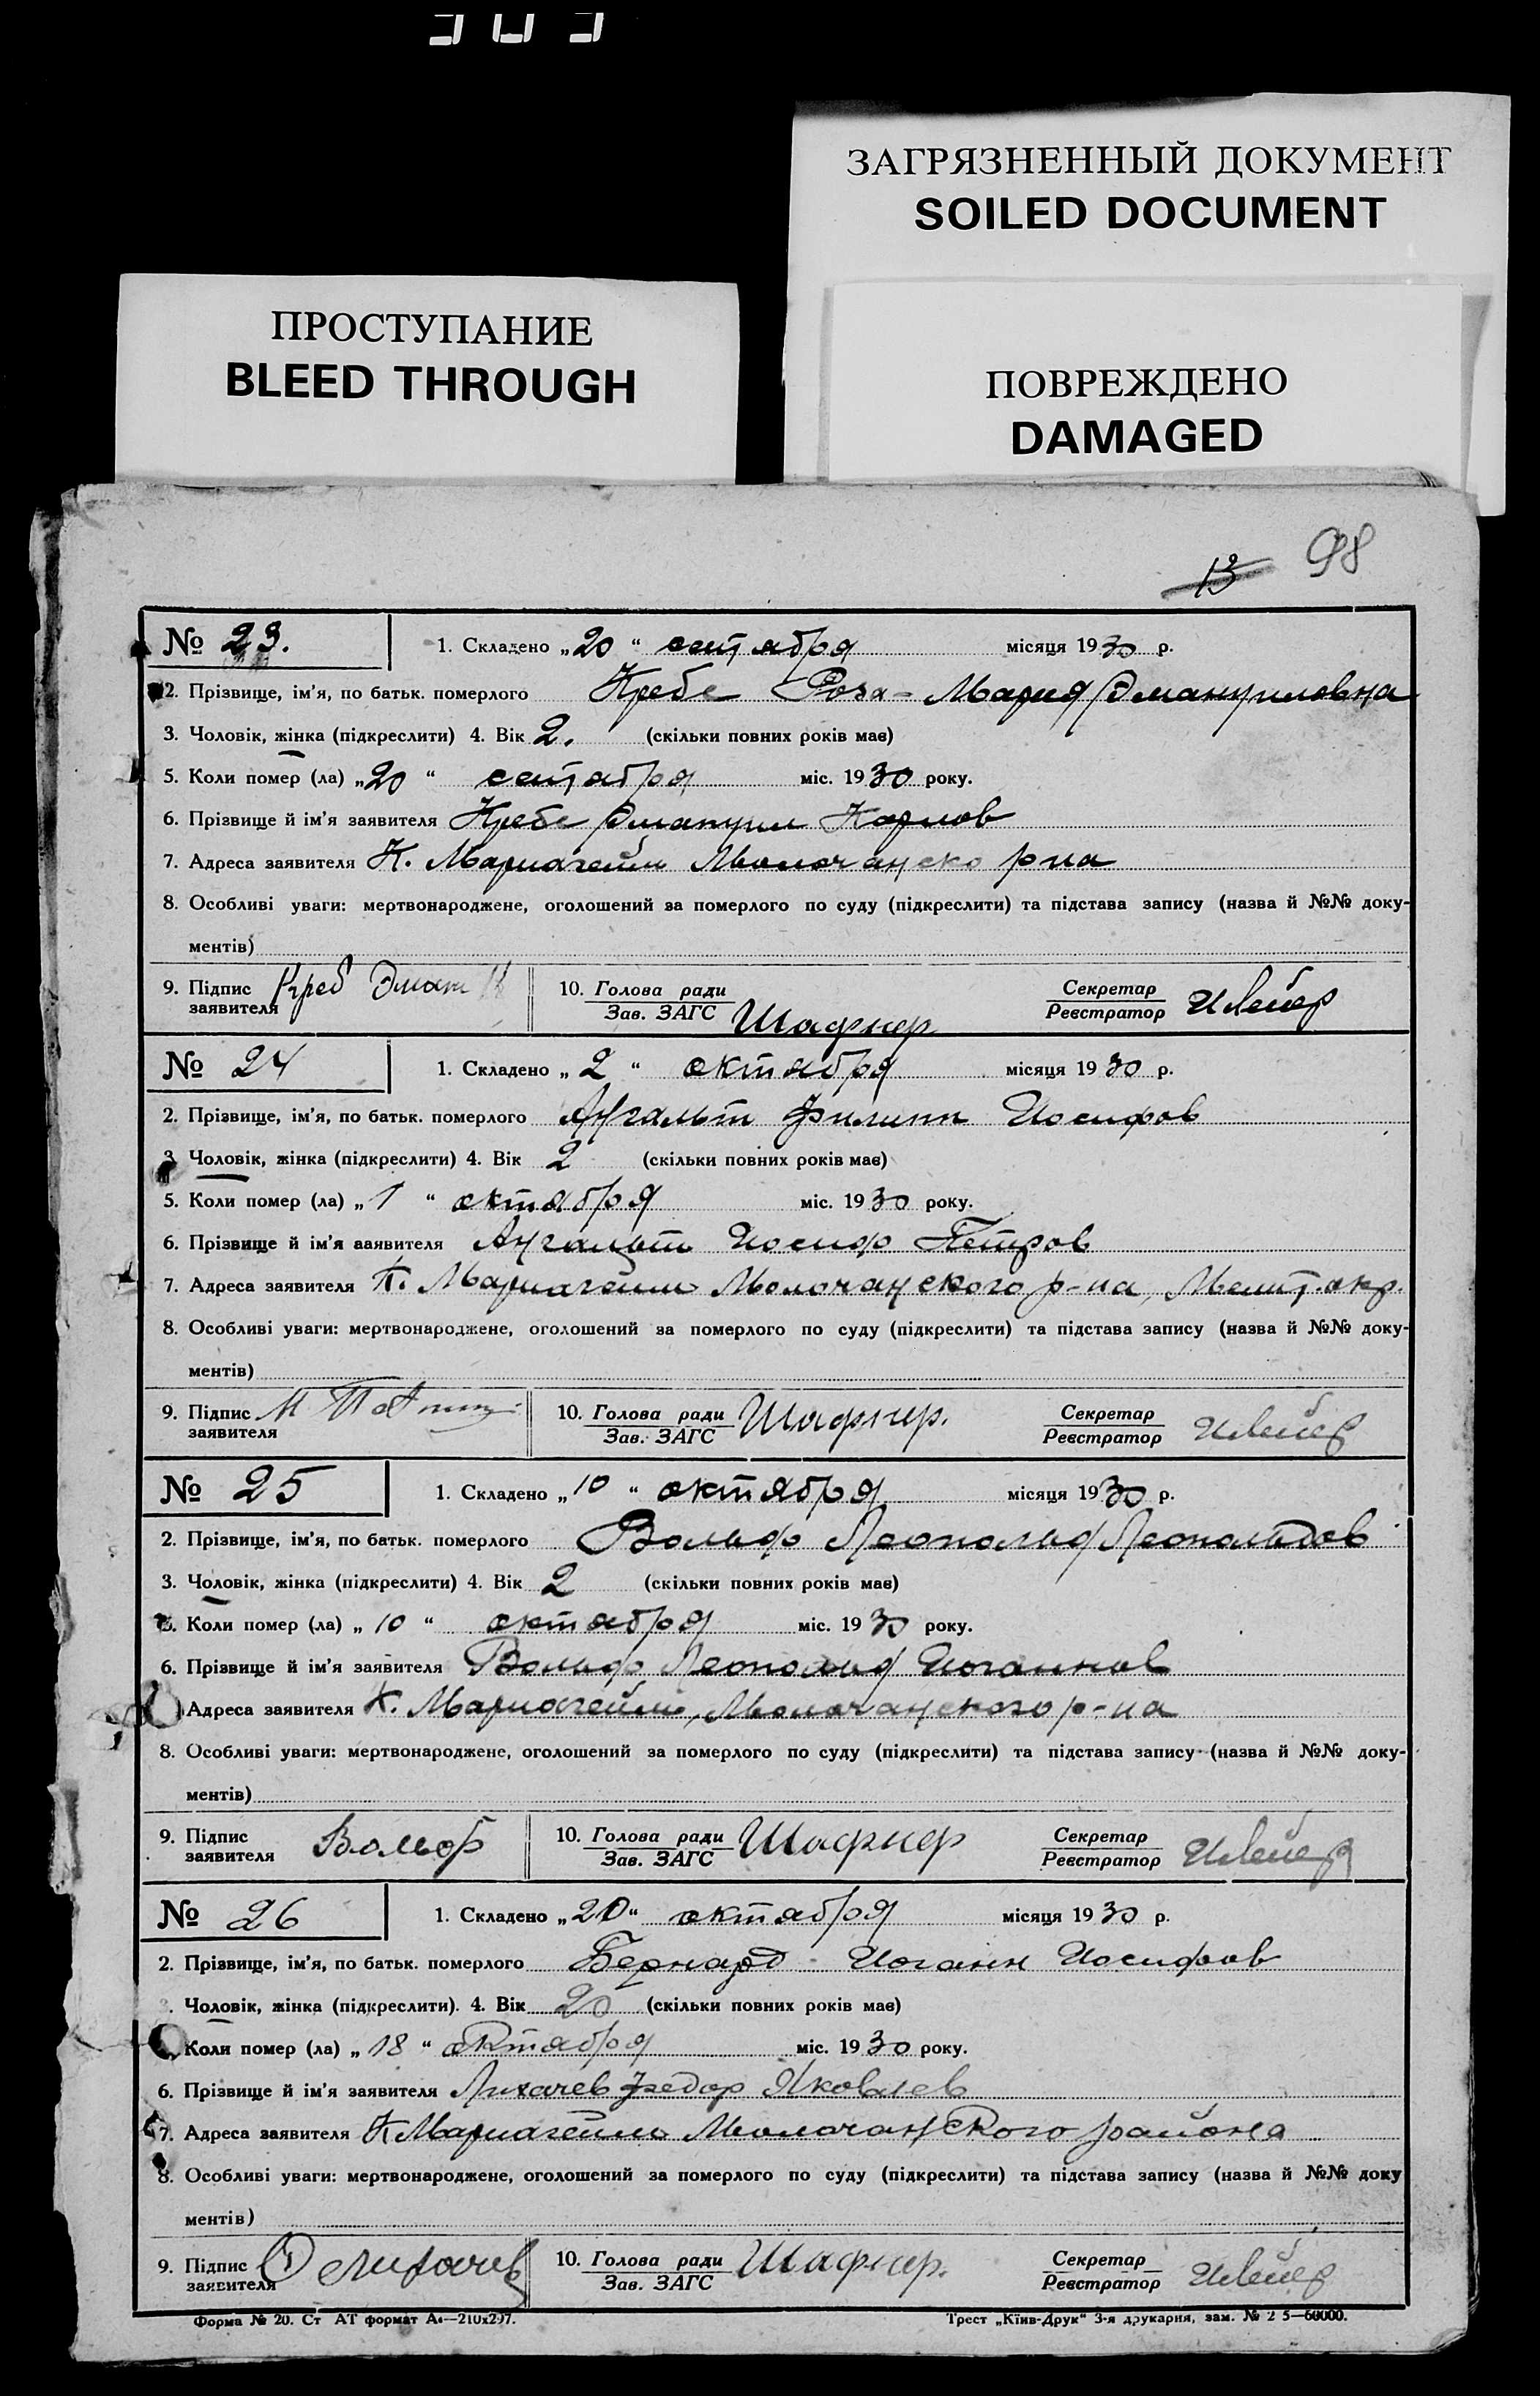 ЗАГРЯЗНЕННЫЙ ДОКУМЕНТ
SOILED DOCUMENT
ПРОСТУПАНИЕ
BLEED THROUGH
ПОВРЕЖДЕНО
DAMAGED
13 98
№ 23. 1. Складено „20“ сентября місяця 1930 р.
2. Прізвище, ім'я, по батьк. померлого Кребс Роза-Мария Эмануиловна
3. Чоловік, жінка (підкреслити) 4. Вік 2. (скільки повних років має)
5. Коли помер (ла) „20“ сентября міс. 1930 року.
6. Прізвище й ім'я заявителя Кребс Эмануил Карлов
7. Адреса заявителя К. Мариагейм Молочанско р-на
8. Особливі уваги: мертвонароджене, оголошений за померлого по суду (підкреслити) та підстава запису (назва й №№ доку-
ментів)
9. Підпис заявителя Креб Эман 10. Голова ради Зав. ЗАГС Шафнер Секретар Реєстратор
№ 24 1. Складено „2“ октября місяця 1930 р.
2. Прізвище, ім'я, по батьк. померлого Ангальт Филипп Иосифов
3. Чоловік, жінка (підкреслити) 4. Вік 2 (скільки повних років має)
5. Коли помер (ла) „1“ октября міс. 1930 року.
6. Прізвище й ім'я заявителя Ангальт Иосиф Петров
7. Адреса заявителя К. Мариагейм Молочанского р-на, Мелит. окр.
8. Особливі уваги: мертвонароджене, оголошений за померлого по суду (підкреслити) та підстава запису (назва й №№ доку-
ментів)
9. Підпис заявителя 10. Голова ради Зав. ЗАГС Шафнер. Секретар Реєстратор
№ 25 1. Складено „10“ октября місяця 1930 р.
2. Прізвище, ім'я, по батьк. померлого Вольф Леопольд Леопольдов
3. Чоловік, жінка (підкреслити) 4. Вік 2 (скільки повних років має)
5. Коли помер (ла) „10“ октября міс. 1930 року.
6. Прізвище й ім'я заявителя Вольф Леопольд Иоганнов
Адреса заявителя К. Мариагейм, Молочанского р-на
8. Особливі уваги: мертвонароджене, оголошений за померлого по суду (підкреслити) та підстава запису (назва й №№ доку-
ментів)
9. Підпис заявителя Вольф 10. Голова ради Зав. ЗАГС Шафнер Секретар Реєстратор
№ 26 1. Складено „20“ октября місяця 1930 р.
2. Прізвище, ім'я, по батьк. померлого Бернард Иоганн Иосифов
Чоловік, жінка (підкреслити). 4. Вік 20 (скільки повних років має)
Коли помер (ла) „18“ октября міс. 1930 року.
6. Прізвище й ім'я заявителя Лихачев Федор Яковлев
7. Адреса заявителя К Мариагейм Молочанского района
8. Особливі уваги: мертвонароджене, оголошений за померлого по суду (підкреслити) та підстава запису (назва й №№ доку
ментів)
9. Підпис заявителя Ф Лихачев 10. Голова ради Зав. ЗАГС Шафнер. Секретар Реєстратор
Форма № 20. Ст АТ формат А4—210x297. Трест „Київ-Друк“ 3-я друкарня, зам. № 2 5—60000.